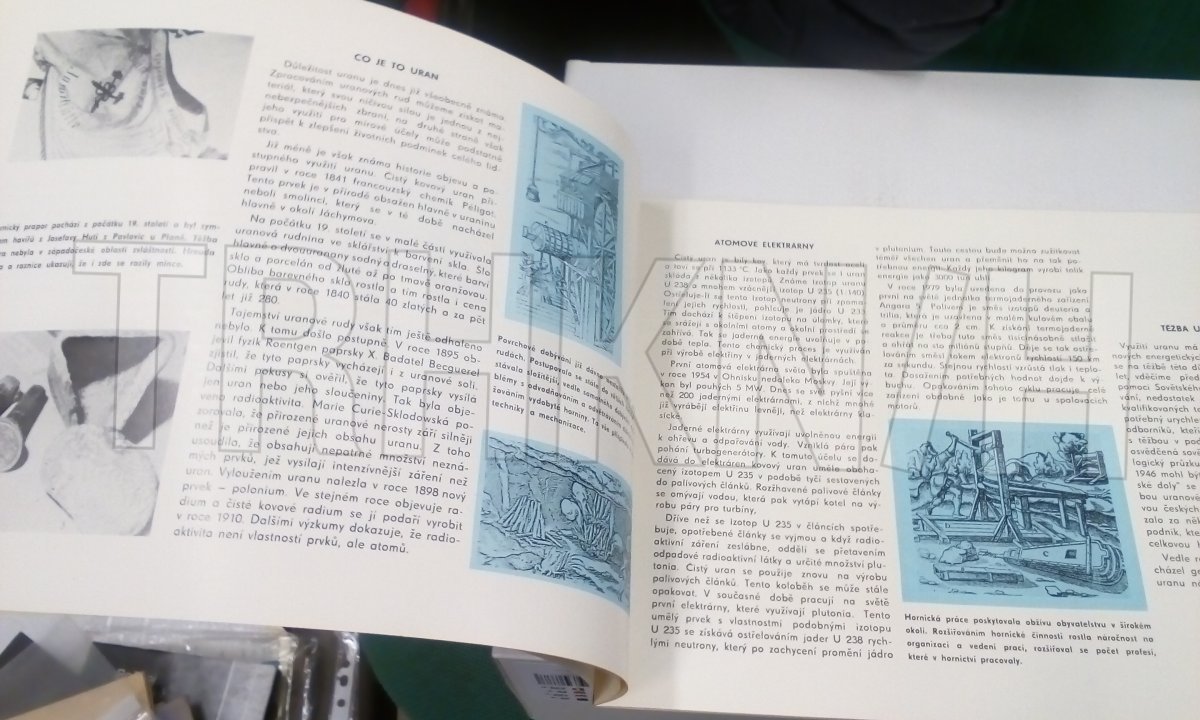 CO JE TO URAN
Důležitost uranu je dnes již všeobecně známa.
Zpracováním uranových rud můžeme získat ma-
teriál, který svou ničivou silou je jednou z nej-
nebezpečnějších zbraní, na druhé straně však
jeho využití pro mírové účely může podstatně
přispět k zlepšení životních podmínek celého lid-
stva.
Již méně je však známa historie objevu a po-
stupného využití uranu. Čistý kovový uran při-
pravil v roce 1841 francouzský chemik Péligot.
Tento prvek je v přírodě obsažen hlavně v uraninu
neboli smolinci, který se v té době nacházel
hlavně v okolí Jáchymova.
Na počátku 19. století se v malé části využívala
uranová rudnina ve sklářství k barvení skla. Šlo
hlavně o dvouuranany sodný a draselný, které barví
sklo a porcelán od žluté až po tmavě oranžovou.
Obliba barevného skla rostla a tím rostla i cena
rudy, která v roce 1840 stála 40 zlatých a za pět
let již 280.
Tajemství uranové rudy však tím ještě odhaleno
nebylo. K tomu došlo postupně. V roce 1895 ob-
jevil fyzik Roentgen paprsky X. Badatel Becquerel
zjistil, že tyto paprsky vycházejí i z uranové soli.
Dalšími pokusy si ověřil, že tyto paprsky vysílá
jen uran nebo jeho sloučeniny. Tak byla obje-
vena radioaktivita. Marie Curie-Sklodowská po-
zorovala, že přirozené uranové nerosty září silněji
než je přirozené jejich obsahu uranu. Z toho
usoudila, že obsahují nepatrné množství nezná-
mých prvků, jež vysílají intenzivnější záření než
uran. Vyloužením uranu nalezla v roce 1898 nový
prvek – polonium. Ve stejném roce objevuje ra-
dium a čisté kovové radium se jí podaří vyrobit
v roce 1910. Dalšími výzkumy dokazuje, že radio-
aktivita není vlastností prvků, ale atomů.
prapor pochází z počátku 19. století a byl sym-
havířů z Josefovy Huti z Pavlovic u Plané. Těžba
nebyla v západočeské oblasti zvláštností. Hrouda
a raznice ukazují, že i zde se razily mince.
Povrchové dobývání již dávno
rudách. Postupovalo se stále do
stávala složitější, vedle samotného
blémy s odvodňováním a odvětráváním
žováním vydobyté horniny. To vše přispělo
techniky a mechanizace.
ATOMOVÉ ELEKTRÁRNY
Čistý uran je bílý kov, který má tvrdost oceli
a taví se při 1133 °C. Jako každý prvek se i uran
skládá z několika izotopů. Známe izotop uranu
U 238 a mnohem vzácnější izotop U 235 (1:140).
Ostřeluje-li se tento izotop neutrony při zpoma-
lení jejich rychlosti, pohlcuje je jádro U 235.
Tím dochází k štěpení izotopu na úlomky, které
se srážejí s okolními atomy a okolní prostředí se
zahřívá. Tak se jaderná energie uvolňuje v po-
době tepla. Tento chemický proces je využíván
při výrobě elektřiny v jaderných elektrárnách.
První atomová elektrárna světa byla spuštěna
v roce 1954 v Obninsku nedaleko Moskvy. Její vý-
kon byl pouhých 5 MW. Dnes se svět pyšní více
než 200 jadernými elektrárnami, z nichž mnohé
již vyrábějí elektřinu levněji, než elektrárny kla-
sické.
Jaderné elektrárny využívají uvolněnou energii
k ohřevu a odpařování vody. Vzniklá pára pak
pohání turbogenerátory. K tomuto účelu se do-
dává do elektráren kovový uran uměle oboha-
cený izotopem U 235 v podobě tyčí sestavených
do palivových článků. Rozžhavené palivové články
se omývají vodou, která pak vytápí kotel na vý-
robu páry pro turbíny.
Dříve než se izotop U 235 v článcích spotře-
buje, opotřebené články se vyjmou a když radio-
aktivní záření zeslábne, oddělí se přetavením
odpadové radioaktivní látky a určité množství plu-
tonia. Čistý uran se použije znovu na výrobu
palivových článků. Tento koloběh se může stále
opakovat. V současné době pracují na světě
první elektrárny, které využívají plutonia. Tento
umělý prvek s vlastnostmi podobnými izotopu
U 235 se získává ostřelováním jader U 238 rych-
lými neutrony, který po zachycení promění jádro
v plutonium. Touto cestou bude možno zužitkovat
téměř všechen uran a přeměnit ho na tak po-
třebnou energii. Každý jeho kilogram vyrobí tolik
energie jako 3000 tun uhlí.
V roce 1979 byla uvedena do provozu jako
první na světě jednotka termojaderného zařízení
Angara V. Palivem je směs izotopů deuteria a
tritia, která je uzavřena v malém kulovém obalu
o průměru cca 2 cm. K získání termojaderné
reakce je třeba tuto směs tisícinásobně stlačit
a ohřát na sto miliónů stupňů. Děje se tak ostře-
lováním směsi tokem elektronů rychlostí 150 km
za sekundu. Stejnou rychlostí vzrůstá tlak i teplo-
ta. Dosažením potřebných hodnot dojde k vý-
buchu. Opakováním tohoto cyklu pracuje celé
zařízení obdobně jako je tomu u spalovacích
motorů.
Hornická práce poskytovala obživu obyvatelstvu v širokém
okolí. Rozšiřováním hornické činnosti rostla náročnost na
organizaci a vedení prací, rozšiřoval se počet profesí,
které v hornictví pracovaly.
TĚŽBA U
Využití uranu má
nových energetický
se na těžbě této dů
let, vděčíme před
pomoci Sovětského
vání, nedostatek
kvalifikovaných
potřebný urychle
odborníků, kteří
s těžbou v pod
osvědčená sově
logický průzku
1946 mohl být
ské doly" se
bou uranové
vou českých
zalo za ně
podnik, kte
celkovou
Vedle
cházel ge
uranu na
TRHKNIH